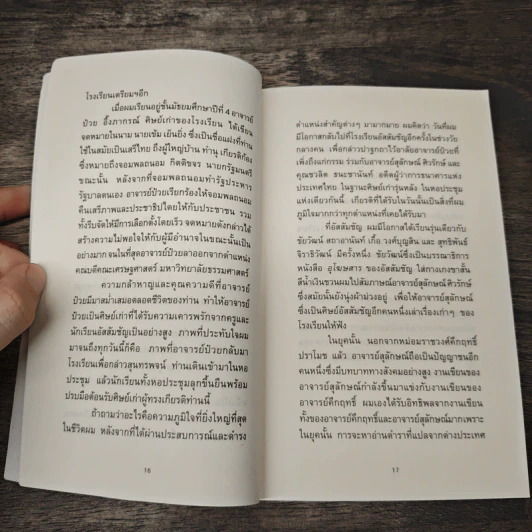 โรงเรียนเตรียมฯอีก
เมื่อผมเรียนอยู่ชั้นมัธยมศึกษาปีที่ 4 อาจารย์
ป๋วย อึ๊งภากรณ์ ศิษย์เก่าของโรงเรียน ได้เขียน
จดหมายในนาม นายเข้ม เย็นยิ่ง ซึ่งเป็นชื่อแฝงที่ท่าน
ใช้ในสมัยเป็นเสรีไทย ถึงผู้ใหญ่บ้าน ทำนุ เกียรติก้อง
ซึ่งหมายถึงจอมพลถนอม กิตติขจร นายกรัฐมนตรี
ขณะนั้น หลังจากที่จอมพลถนอมทำรัฐประหาร
รัฐบาลตนเอง อาจารย์ป๋วยเรียกร้องให้จอมพลถนอม
คืนเสรีภาพและประชาธิปไตยให้กับประชาชน รวม
ทั้งรีบจัดให้มีการเลือกตั้งโดยเร็ว จดหมายดังกล่าวได้
สร้างความไม่พอใจให้กับผู้มีอำนาจในขณะนั้นเป็น
อย่างมาก จนในที่สุดอาจารย์ป๋วยลาออกจากตำแหน่ง
คณบดีคณะเศรษฐศาสตร์ มหาวิทยาลัยธรรมศาสตร์
ความกล้าหาญและคุณความดีที่อาจารย์
ป๋วยมีมาสม่ำเสมอตลอดชีวิตของท่าน ทำให้อาจารย์
ป๋วยเป็นศิษย์เก่าที่ได้รับความเคารพรักจากครูและ
นักเรียนอัสสัมชัญเป็นอย่างสูง ภาพที่ประทับใจผม
มาจนถึงทุกวันนี้ก็คือ ภาพที่อาจารย์ป๋วยกลับมา
โรงเรียนเพื่อกล่าวสุนทรพจน์ ท่านเดินเข้ามาในหอ
ประชุม แล้วนักเรียนทั้งหอประชุมลุกขึ้นยืนพร้อม
ปรบมือต้อนรับศิษย์เก่าผู้ทรงเกียรติท่านนี้
ถ้าถามว่าอะไรคือความภูมิใจที่ยิ่งใหญ่ที่สุด
ในชีวิตผม หลังจากที่ได้ผ่านประสบการณ์และดำรง
16
ตำแหน่งสำคัญต่างๆ มามากมาย ผมคิดว่า วันที่ผม
มีโอกาสกลับไปที่โรงเรียนอัสสัมชัญอีกครั้งในช่วงวัย
กลางคน เพื่อกล่าวปาฐกถาไว้อาลัยอาจารย์ป๋วยที่
เพิ่งถึงแก่กรรม ร่วมกับอาจารย์สุลักษณ์ ศิวรักษ์ และ
คุณชวลิต ธนะชานันท์ อดีตผู้ว่าการธนาคารแห่ง
ประเทศไทย ในฐานะศิษย์เก่ารุ่นหลัง ในหอประชุม
แห่งเดียวกันนี้ เกียรติที่ได้รับในวันนั้นเป็นสิ่งที่ผม
ภูมิใจมากกว่าทุกตำแหน่งที่เคยได้รับมา
ที่อัสสัมชัญ ผมมีโอกาสได้เรียนรุ่นเดียวกับ
ชัยวัฒน์ สถาอานันท์ เกื้อ วงศ์บุญสิน และ สุทธิพันธ์
จิราธิวัฒน์ มีครั้งหนึ่ง ชัยวัฒน์ซึ่งเป็นบรรณาธิการ
หนังสือ อุโฆษสาร ของอัสสัมชัญ ใส่กางเกงขาสั้น
สีน้ำเงินชวนผมไปสัมภาษณ์อาจารย์สุลักษณ์ ศิวรักษ์
ซึ่งสมัยนั้นยังนุ่งผ้าม่วงอยู่ เพื่อให้อาจารย์สุลักษณ์
ซึ่งเป็นศิษย์อัสสัมชัญอีกคนหนึ่งเล่าเรื่องเก่าๆ ของ
โรงเรียนให้ฟัง
ในยุคนั้น นอกจากหม่อมราชวงศ์คึกฤทธิ์
ปราโมช แล้ว อาจารย์สุลักษณ์ถือเป็นปัญญาชนอีก
คนหนึ่งซึ่งมีบทบาททางสังคมอย่างสูง งานเขียนของ
อาจารย์สุลักษณ์กำลังขึ้นมาแข่งกับงานเขียนของ
อาจารย์คึกฤทธิ์ ผมเองได้รับอิทธิพลจากงานเขียน
ทั้งของอาจารย์คึกฤทธิ์และอาจารย์สุลักษณ์มากเพราะ
ในยุคนั้น การจะหาอ่านตำราที่แปลจากต่างประเทศ
17